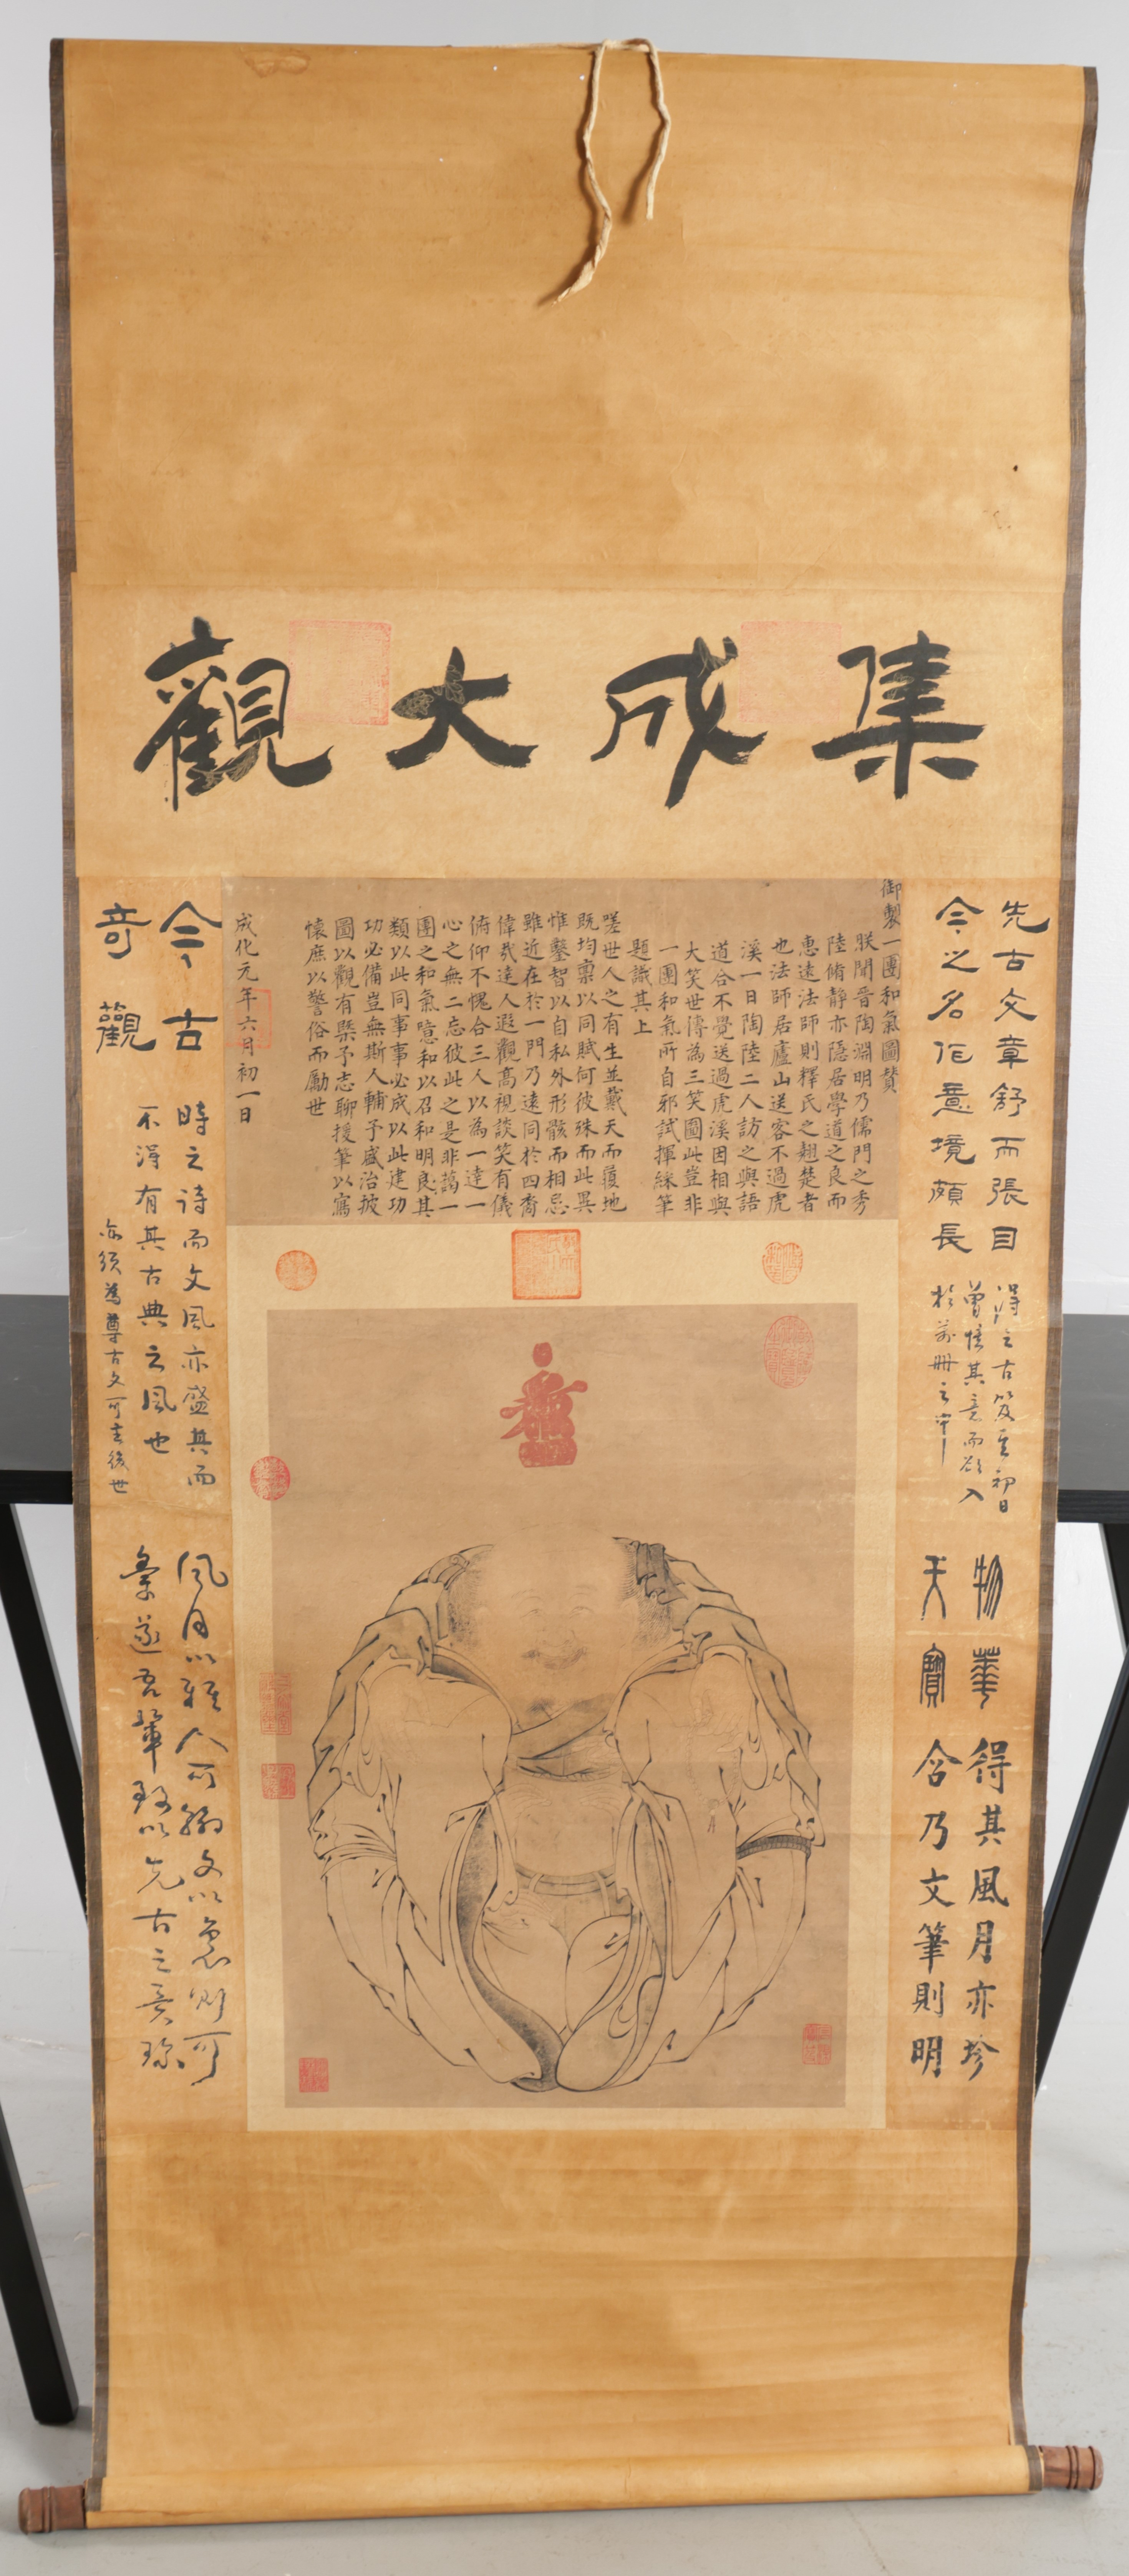 集成大觀
先古文章舒而張目
今之名作意境頗長
得之古笈至初日
曾悟其意而欲入
於萬冊之中
物華
天寶
得其風月亦珍
含乃文筆則明
御製一團和氣圖贊
朕聞晉陶淵明乃儒門之秀
陸脩靜亦隱居學道之良而
惠遠法師則釋氏之翹楚者
也法師居廬山送客不過虎
溪一日陶陸二人訪之與語
道合不覺送過虎溪因相與
大笑世傳為三笑圖此豈非
一團和氣所自邪試揮綵筆
題識其上
嗟世人之有生並戴天而履地
既均稟以同賦何彼殊而此異
惟鑿智以自私外形骸而相忌
雖近在於一門乃遠同於四裔
偉哉達人遐觀高視談笑有儀
俯仰不愧合三人以為一達一
心之無二忘彼此之是非藹一
團之和氣噫和以召和明良其
類以此同事事必成以此建功
功必備豈無斯人輔予盛治披
圖以觀有槩予志聊援筆以寫
懷庶以警俗而勵世
成化元年六月初一日
今古
奇觀
時之詩而文風亦盛其而
不得有其古典之風也
亦須為尊古文可至後世
風月以雅人可 文以意則可
遂吾輩 以先古之意